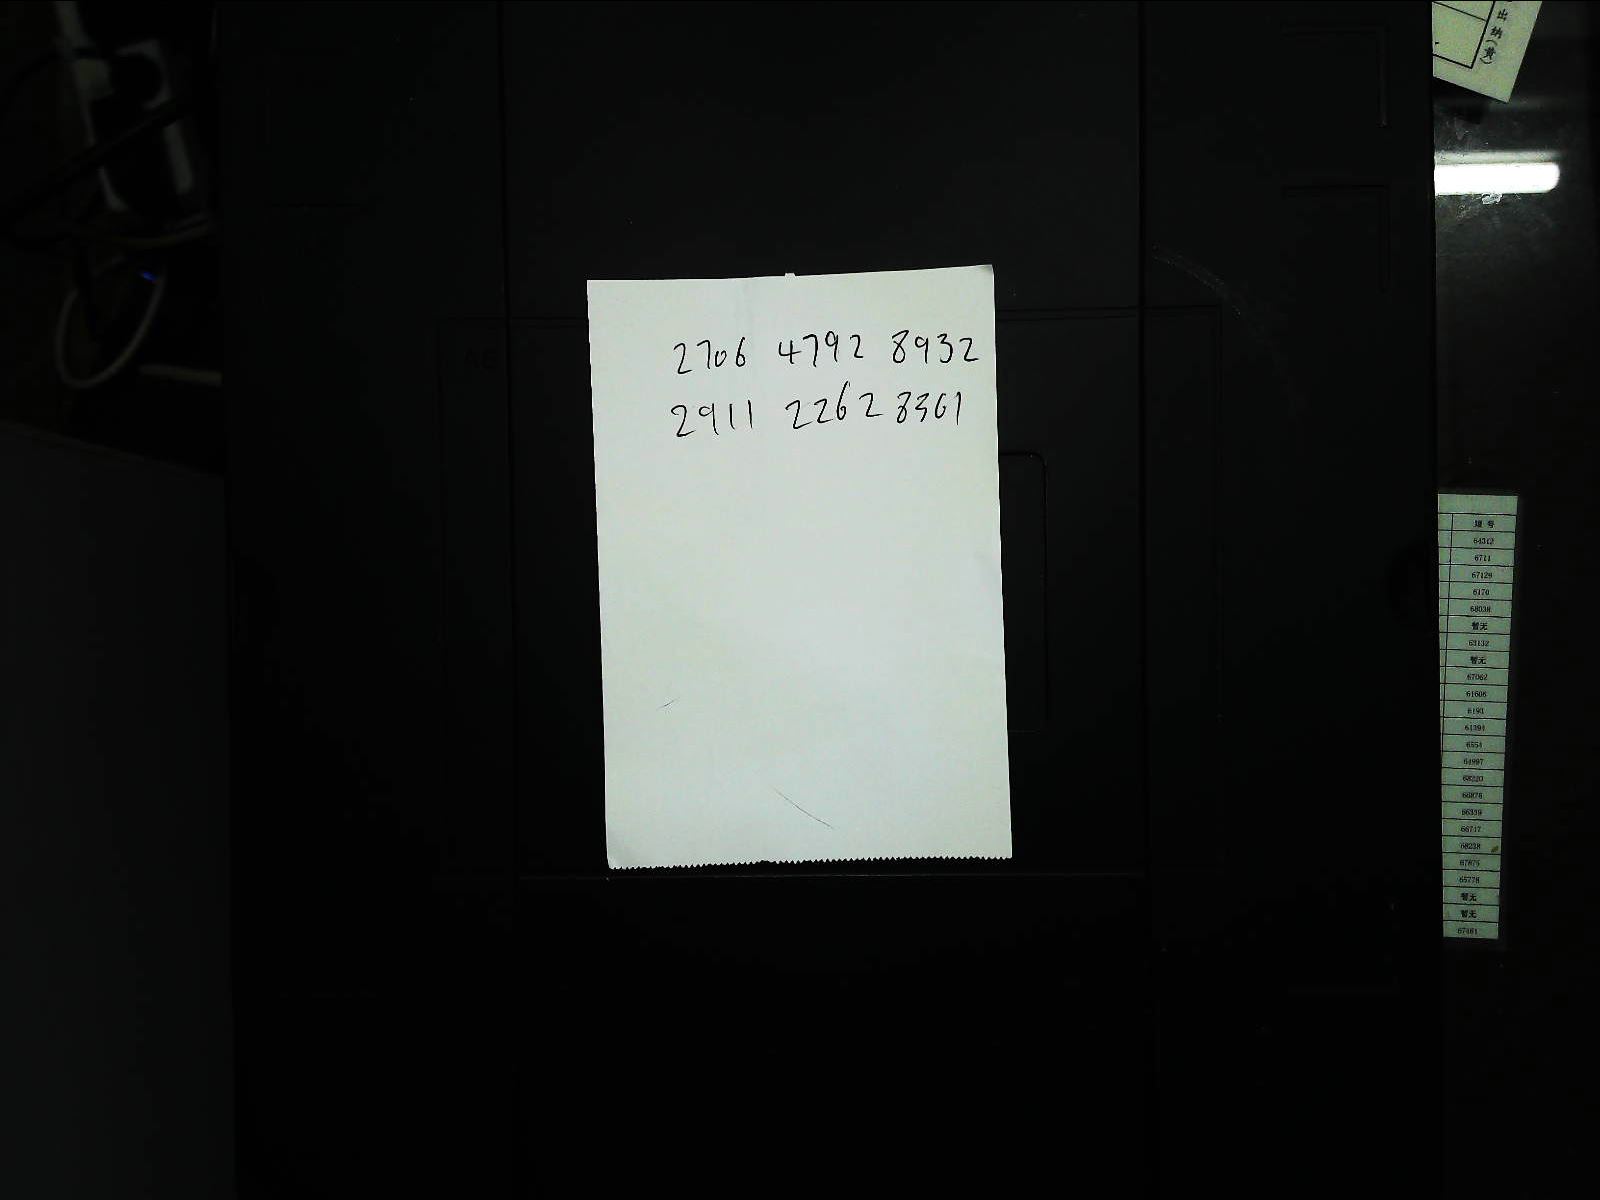 出纳(黄)
2706 4792 8932
2911 2262 8361
短号
64312
6711
67129
6170
68038
暂无
63132
暂无
67062
61606
6193
61394
6554
64997
68220
68876
66339
66717
68238
67875
65778
暂无
暂无
67461